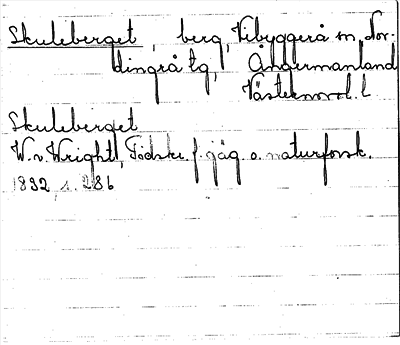 Skuleberget, berg, Vibyggerå sn, Nor-
dingrå tg, Ångermanland
Västernorrl. l.
Skuleberget
W. v. Wright, Tidskr. f. jäg. o. naturforsk.
1832, s. 286